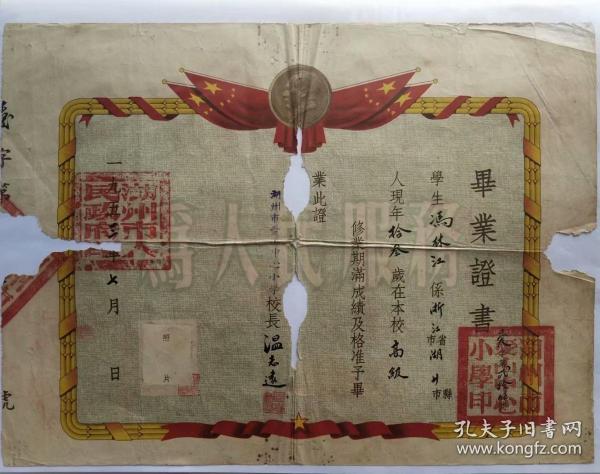 畢業證書
學生馮林江係浙江省湖州市縣
人現年拾叁歲在本校高級
修業期滿成績及格准予畢
業此證
湖州市 中心小學校長溫志遠
一九五三年七月 日
照片
為人民服務
湖州市人民政府
湖州市 小學印
字第
號
孔夫子旧书网
book.kongfz.com